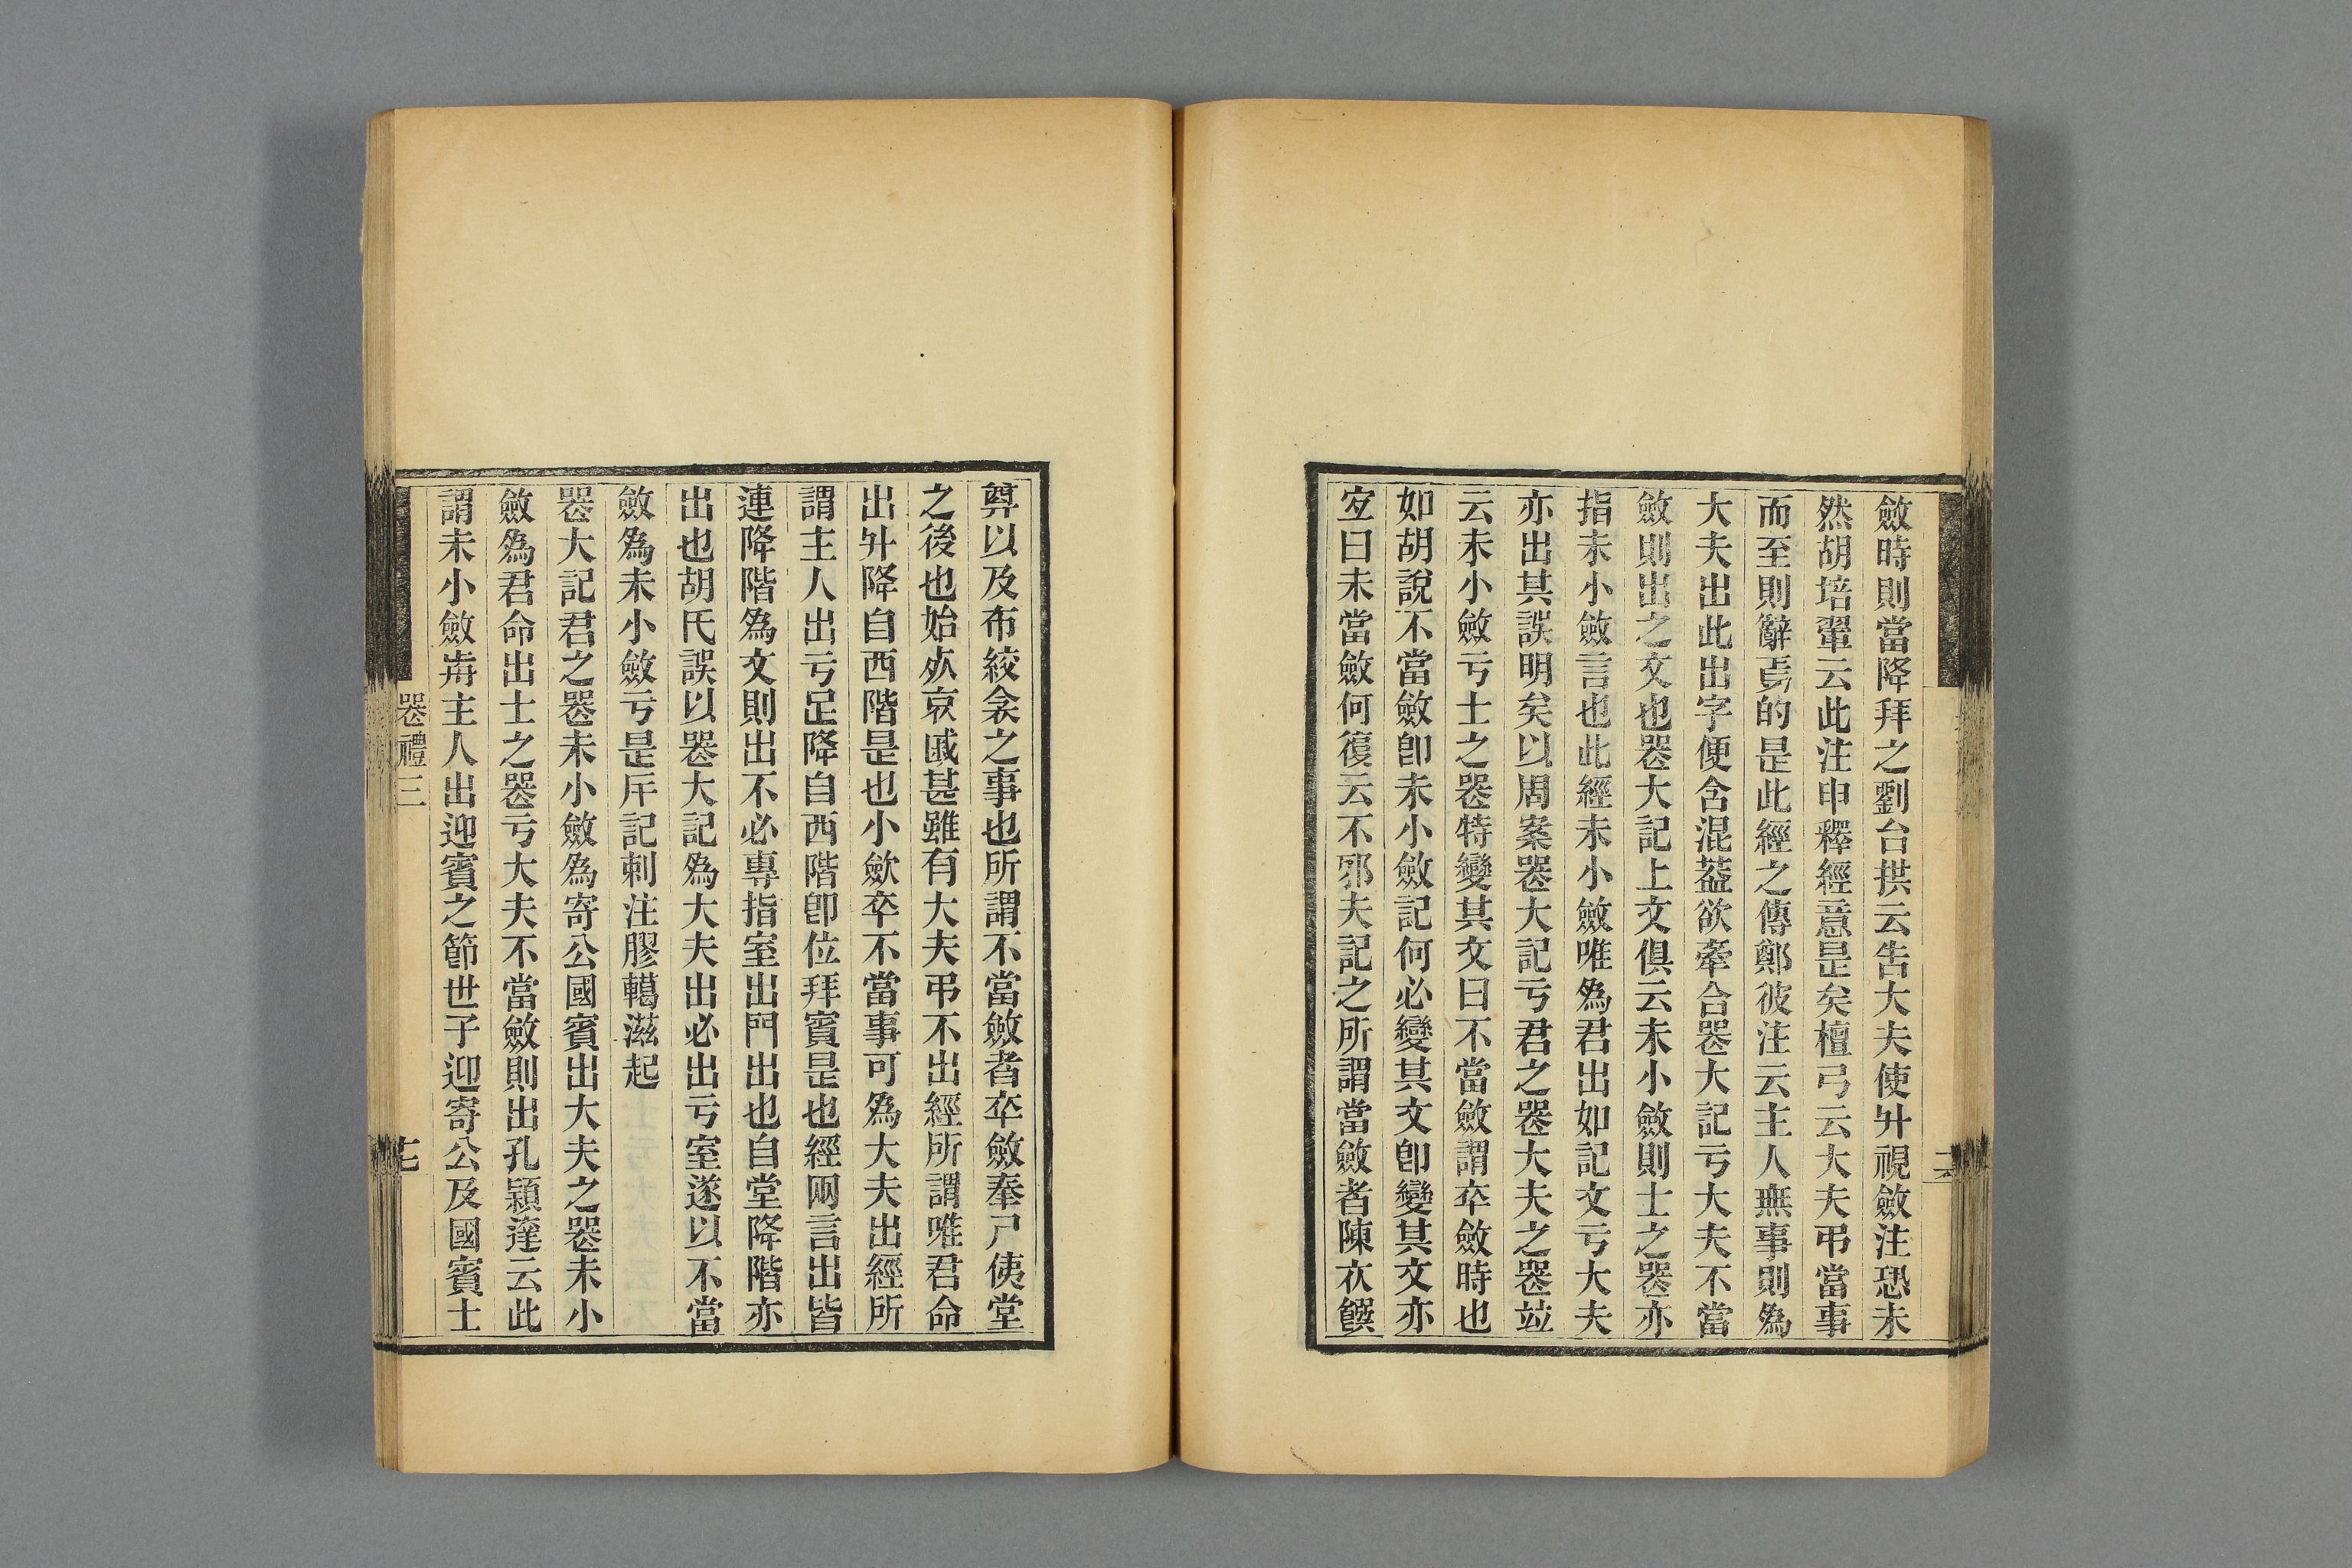 斂時則當降拜之劉台拱云告大夫使升視斂注恐未
然胡培翬云此注申釋經意是矣檀弓云大夫弔當事
而至則辭焉的是此經之傳鄭彼注云主人無事則為
大夫出此出字便含混葢欲牽合喪大記亏大夫不當
斂則出之文也喪大記上文俱云未小斂則士之喪亦
指未小斂言也此經未小斂唯為君出如記文亏大夫
亦出其誤明矣以周案喪大記亏君之喪大夫之喪竝
云未小斂亏士之喪特變其文曰不當斂謂卒斂時也
如胡說不當斂卽未小斂記何必變其文卽變其文亦
宐曰未當斂何復云不邪夫記之所謂當斂者陳衣饌
算以及布絞衾之事也所謂不當斂者卒斂奉尸侇堂
之後也始𣦸哀戚甚雖有大夫弔不出經所謂唯君命
出升降自西階是也小歛卒不當事可為大夫出經所
謂主人出亏足降自西階卽位拜賓是也經兩言出皆
連降階為文則出不必專指室出門出也自堂降階亦
出也胡氏誤以喪大記為大夫出必出亏室遂以不當
斂為未小斂亏是斥記刺注膠轕滋起
喪大記君之喪未小斂為寄公國賓出大夫之喪未小
斂為君命出士之喪亏大夫不當斂則出孔穎達云此
謂未小斂歬主人出迎賓之節世子迎寄公及國賓士
喪禮三
十七